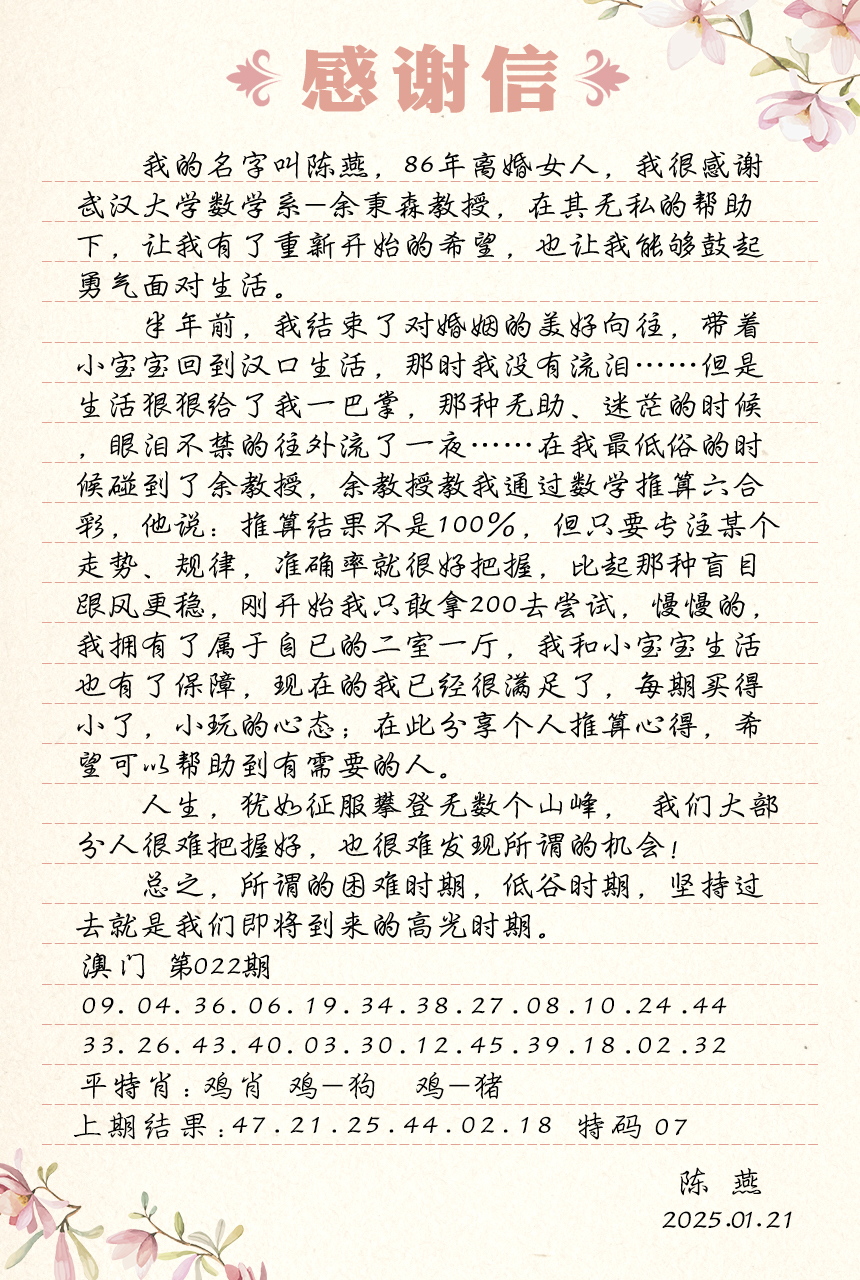 感谢信
我的名字叫陈燕，86年离婚女人，我很感谢
武汉大学数学系—余秉森教授，在其无私的帮助
下，让我有了重新开始的希望，也让我能够鼓起
勇气面对生活。
半年前，我结束了对婚姻的美好向往，带着
小宝宝回到汉口生活，那时我没有流泪……但是
生活狠狠给了我一巴掌，那种无助、迷茫的时候
，眼泪不禁的往外流了一夜……在我最低俗的时
候碰到了余教授，余教授教我通过数学推算六合
彩，他说：推算结果不是100%，但只要专注某个
走势、规律，准确率就很好把握，比起那种盲目
跟风更稳，刚开始我只敢拿200去尝试，慢慢的，
我拥有了属于自已的二室一厅，我和小宝宝生活
也有了保障，现在的我已经很满足了，每期买得
小了，小玩的心态；在此分享个人推算心得，希
望可以帮助到有需要的人。
人生，犹如征服攀登无数个山峰， 我们大部
分人很难把握好，也很难发现所谓的机会！
总之，所谓的困难时期，低谷时期，坚持过
去就是我们即将到来的高光时期。
澳门 第022期
09.04.36.06.19.34.38.27.08.10.24.44
33.26.43.40.03.30.12.45.39.18.02.32
平特肖：鸡肖 鸡—狗 鸡—猪
上期结果：47.21.25.44.02.18 特码 07
陈 燕
2025.01.21